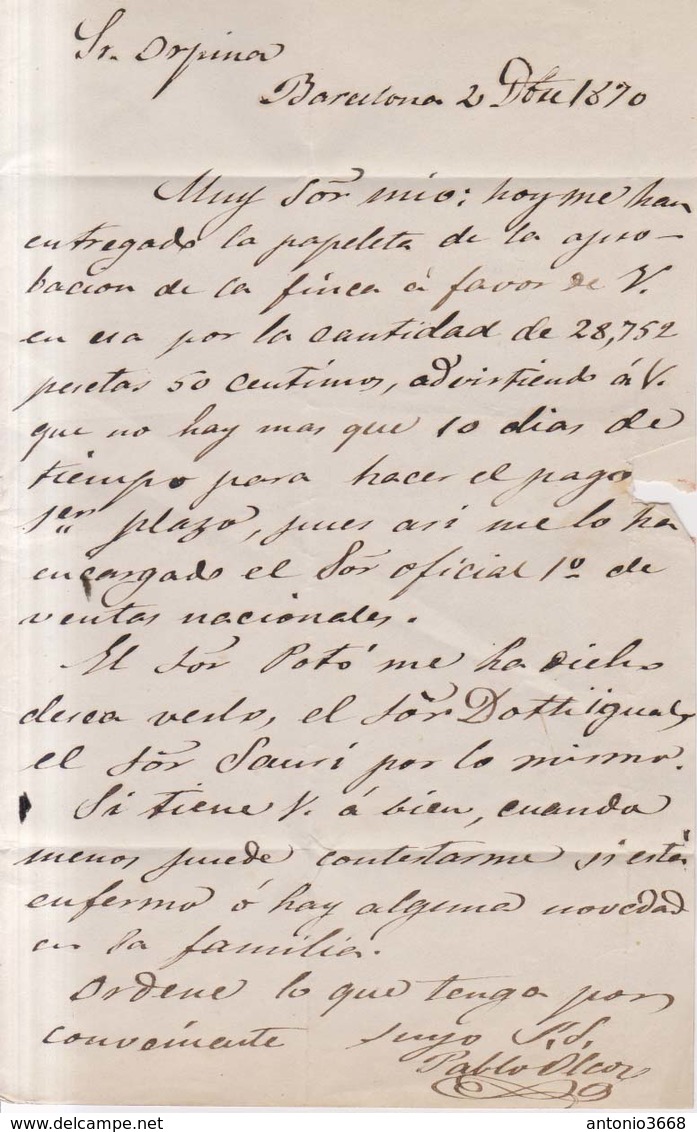 Sr. Orpina
Barcelona 2 Dbre 1870
Muy Sõr mio: hoy me han
entregado la papeleta de la apro-
bacion de la finca á favor de V.
en esa por la cantidad de 28,752
pesetas 50 centimos, advirtiendo á V.
que no hay mas que 10 dias de
tiempo para hacer el pago
1er plazo, pues asi me lo ha
encargado el Sõr oficial 1º de
ventas nacionales.
El Sõr Potó me ha dicho
desea verlo, el Sõr Dotti igual,
el Sõr Saurí por lo mismo.
Si tiene V. á bien, cuando
menos puede contestarme si está
enfermo ó hay alguna novedad
en la familia.
Ordene lo que tenga por
conveniente suyo S.S.
Pablo
antonio3668